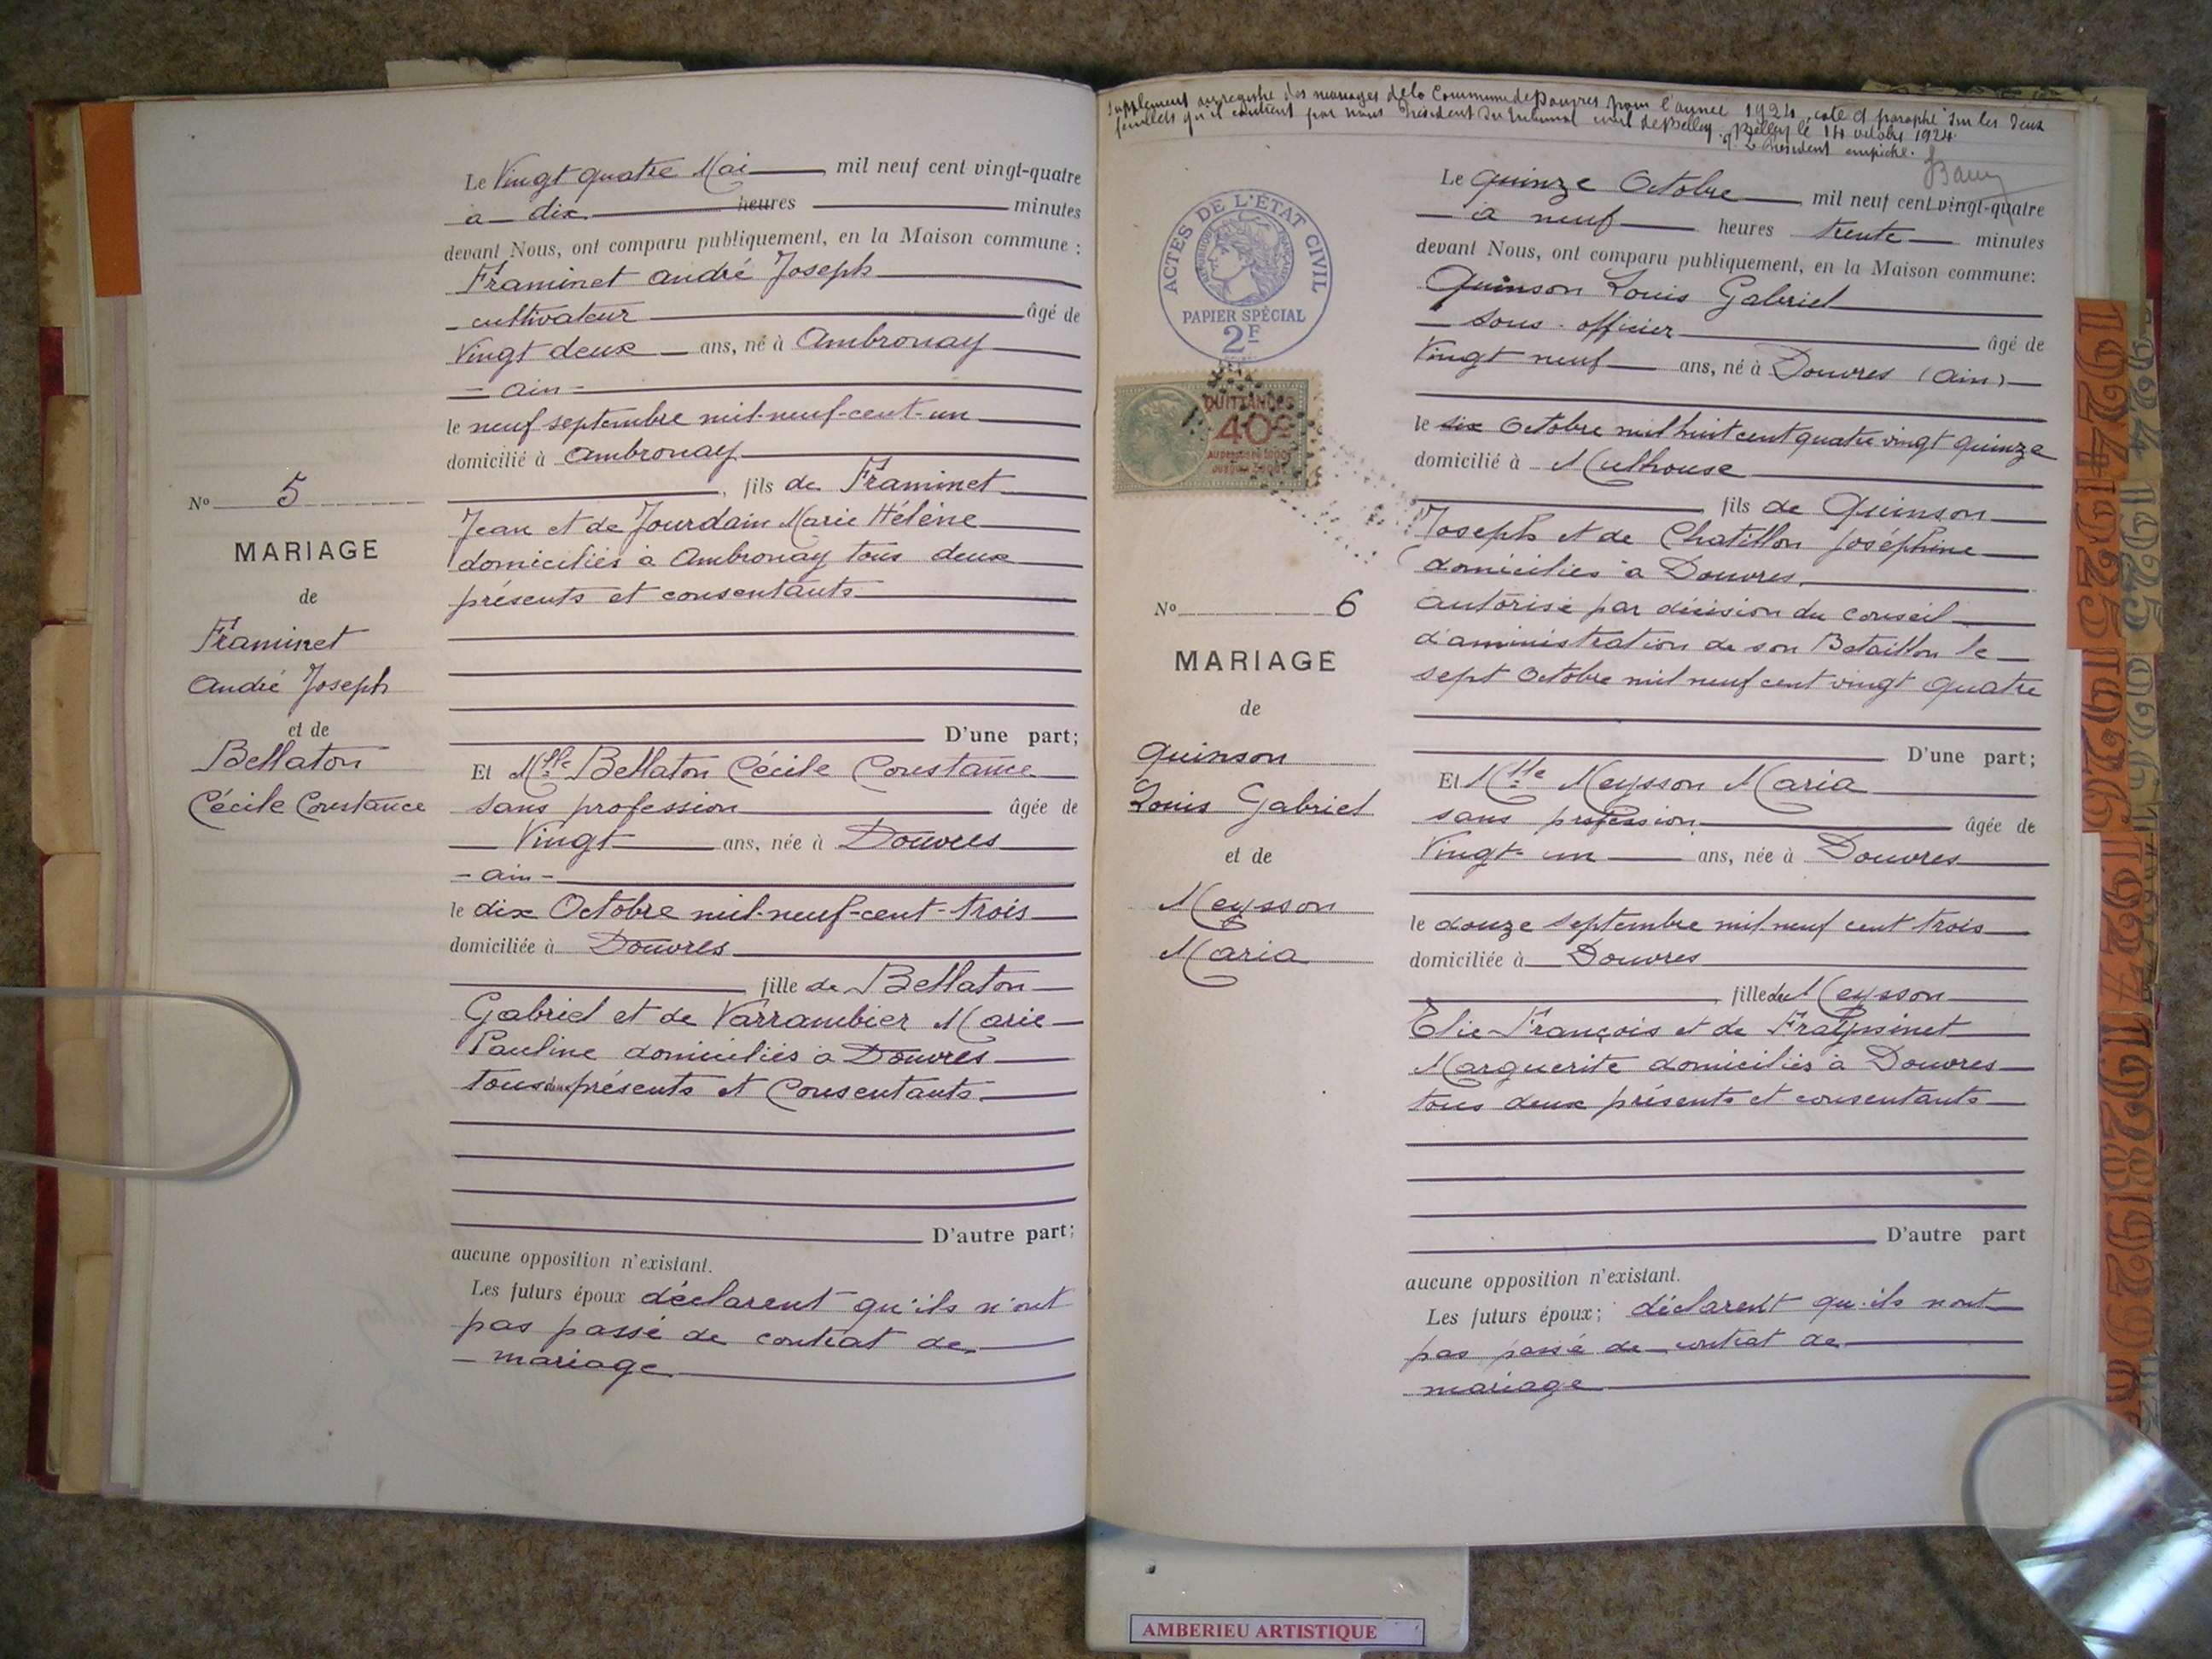 Le Vingt quatre Mai mil neuf cent vingt-quatre
a dix heures minutes
devant Nous, ont comparu publiquement, en la Maison commune :
Framinet André Joseph
cultivateur âgé de
Vingt deux ans, né à Ambronay
- Ain -
le neuf septembre mil-neuf-cent-un
domicilié à Ambronay
, fils de Framinet
Jean et de Jourdain Marie Hélène
domiciliés à Ambronay tous deux
présents et consentants
D'une part;
Et Mlle Bellaton Cécile Constance
sans profession âgée de
Vingt ans, née à Douvres
- Ain -
le dix Octobre mil-neuf-cent-trois
domiciliée à Douvres
fille de Bellaton
Gabriel et de Varrambier Marie
Pauline domiciliés à Douvres
tous deux présents et Consentants.
D'autre part;
aucune opposition n'existant.
Les futurs époux déclarent qu'ils n'ont
pas passé de contrat de
mariage
No 5
MARIAGE
de
Framinet
André Joseph
et de
Bellaton
Cécile Constance
Supplément au registre des mariages de la Commune de Douvres pour l'année 1924, coté et paraphé sur les deux
feuillets qu'il contient par nous Président du tribunal civil de Belley. Belley le 14 octobre 1924.
Président empêché.
ACTES DE L'ÉTAT CIVIL
RÉPUBLIQUE FRANÇAISE
PAPIER SPÉCIAL
2F
QUITTANCES
40c
No 6
MARIAGE
de
Quinson
Louis Gabriel
et de
Meysson
Maria
Le Quinze Octobre mil neuf cent vingt-quatre
à neuf heures trente minutes
devant Nous, ont comparu publiquement, en la Maison commune:
Quinson Louis Gabriel
Sous-officier âgé de
Vingt neuf ans, né à Douvres (Ain)
le six Octobre mil huit cent quatre vingt quinze
domicilié à Mulhouse
fils de Quinson
Joseph et de Chatillon Joséphine
domiciliés à Douvres.
autorisé par décision du conseil
d'aministration de son Bataillon le
sept Octobre mil neuf cent vingt quatre
D'une part;
Et Mlle Meysson Maria
sans profession âgée de
Vingt-un ans, née à Douvres
le douze septembre mil neuf cent trois
domiciliée à Douvres
, fille de Meysson
Elie-François et de Frayssinet
Marguerite domiciliés à Douvres
tous deux présents et consentants
D'autre part
aucune opposition n'existant.
Les futurs époux; déclarent qu'ils n'ont
pas passé de contrat de
mariage
1924
1925
1926
1927
1928
1929
AMBERIEU ARTISTIQUE